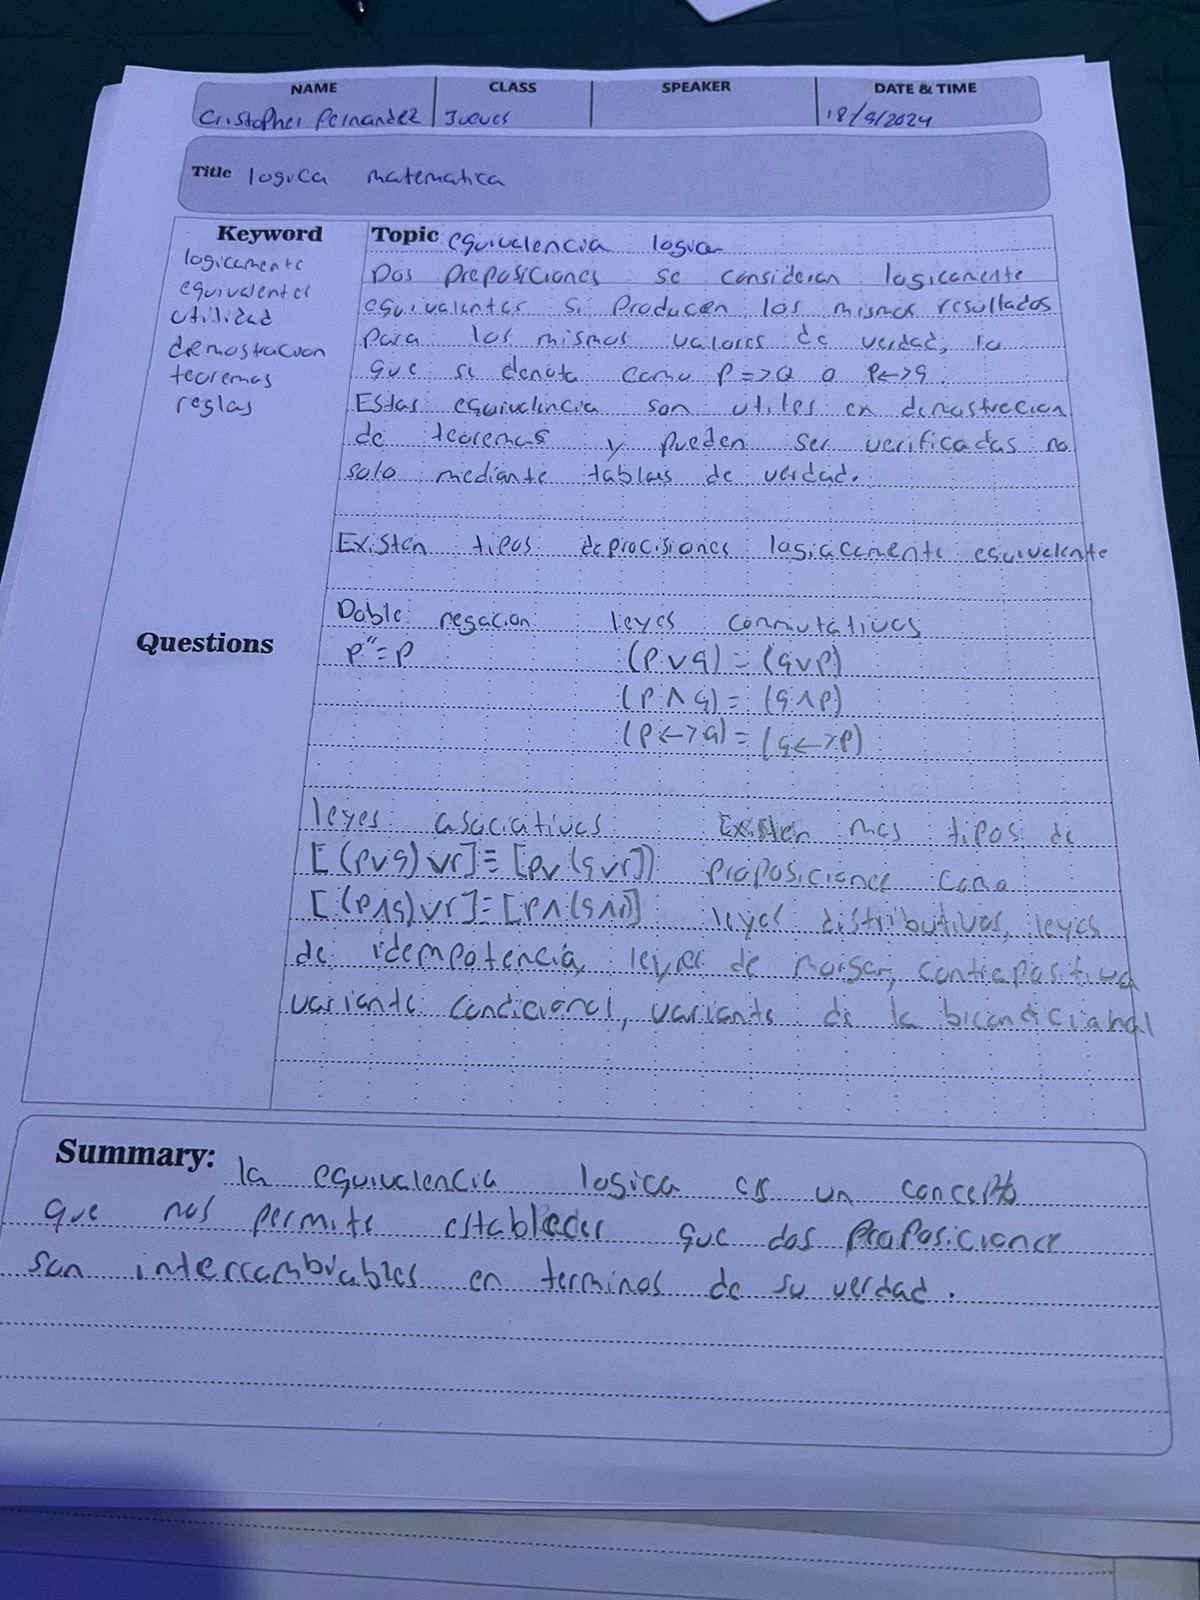 NAME CLASS SPEAKER DATE & TIME
Cristopher Fernandez Jueves 18/9/2024
Title logica matematica
Keyword
logicamente
equivalentes
utilidad
demostracion
teoremas
reglas
Questions
Topic equivalencia logica
Dos preposiciones se consideran logicamente
equivalentes si producen los mismos resultados
para los mismos valores de verdad, lo
que se denota como P=>Q o P<->q.
Estas equivalencia son utiles en demostracion
de teoremas y pueden ser verificadas no
solo mediante tablas de verdad.
Existen tipos de procisiones logicamente equivalente
Doble negacion leyes conmutativas
p''=p (p∨q)=(q∨p)
(p∧q)=(q∧p)
(p<->q)=(q<->p)
leyes asociativas Existen mas tipos de
[(p∨q)∨r]≡[p∨(q∨r)] proposiciones como
[(p∧q)∨r]=[p∧(q∧r)] leyes distributivas, leyes
de idempotencia, leyes de morgan, contrapositiva
variante condicional, variante de la bicondicional
Summary: la equivalencia logica es un concepto
que nos permite establecer que dos proposicione
son intercambiables en terminos de su verdad.